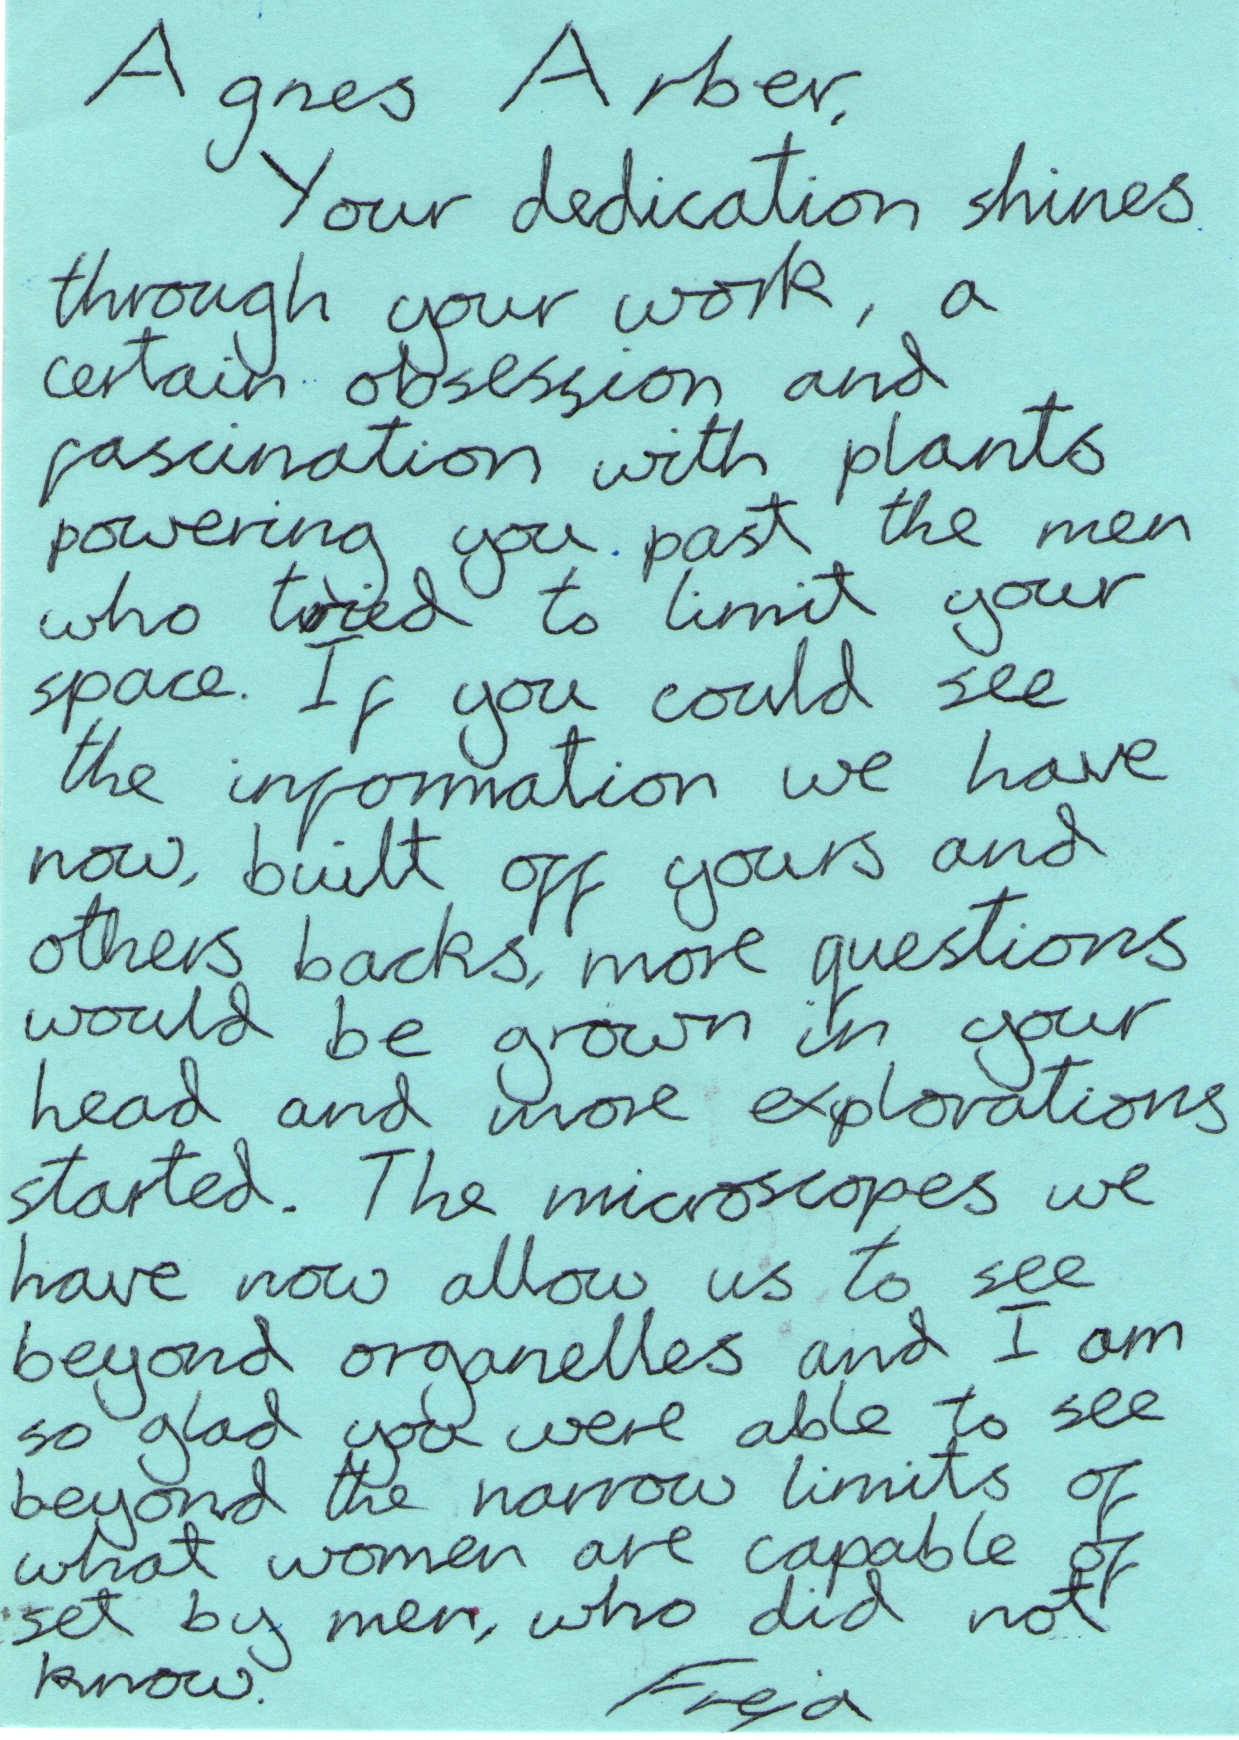 Agnes Arber,
Your dedication shines
through your work, a
certain obsession and
fascination with plants
powering you past the men
who tried to limit your
space. If you could see
the information we have
now, built off yours and
others backs, more questions
would be grown in your
head and more explorations
started. The microscopes we
have now allow us to see
beyond organelles and I am
so glad you were able to see
beyond the narrow limits of
what women are capable of
set by men, who did not
know.
Freja